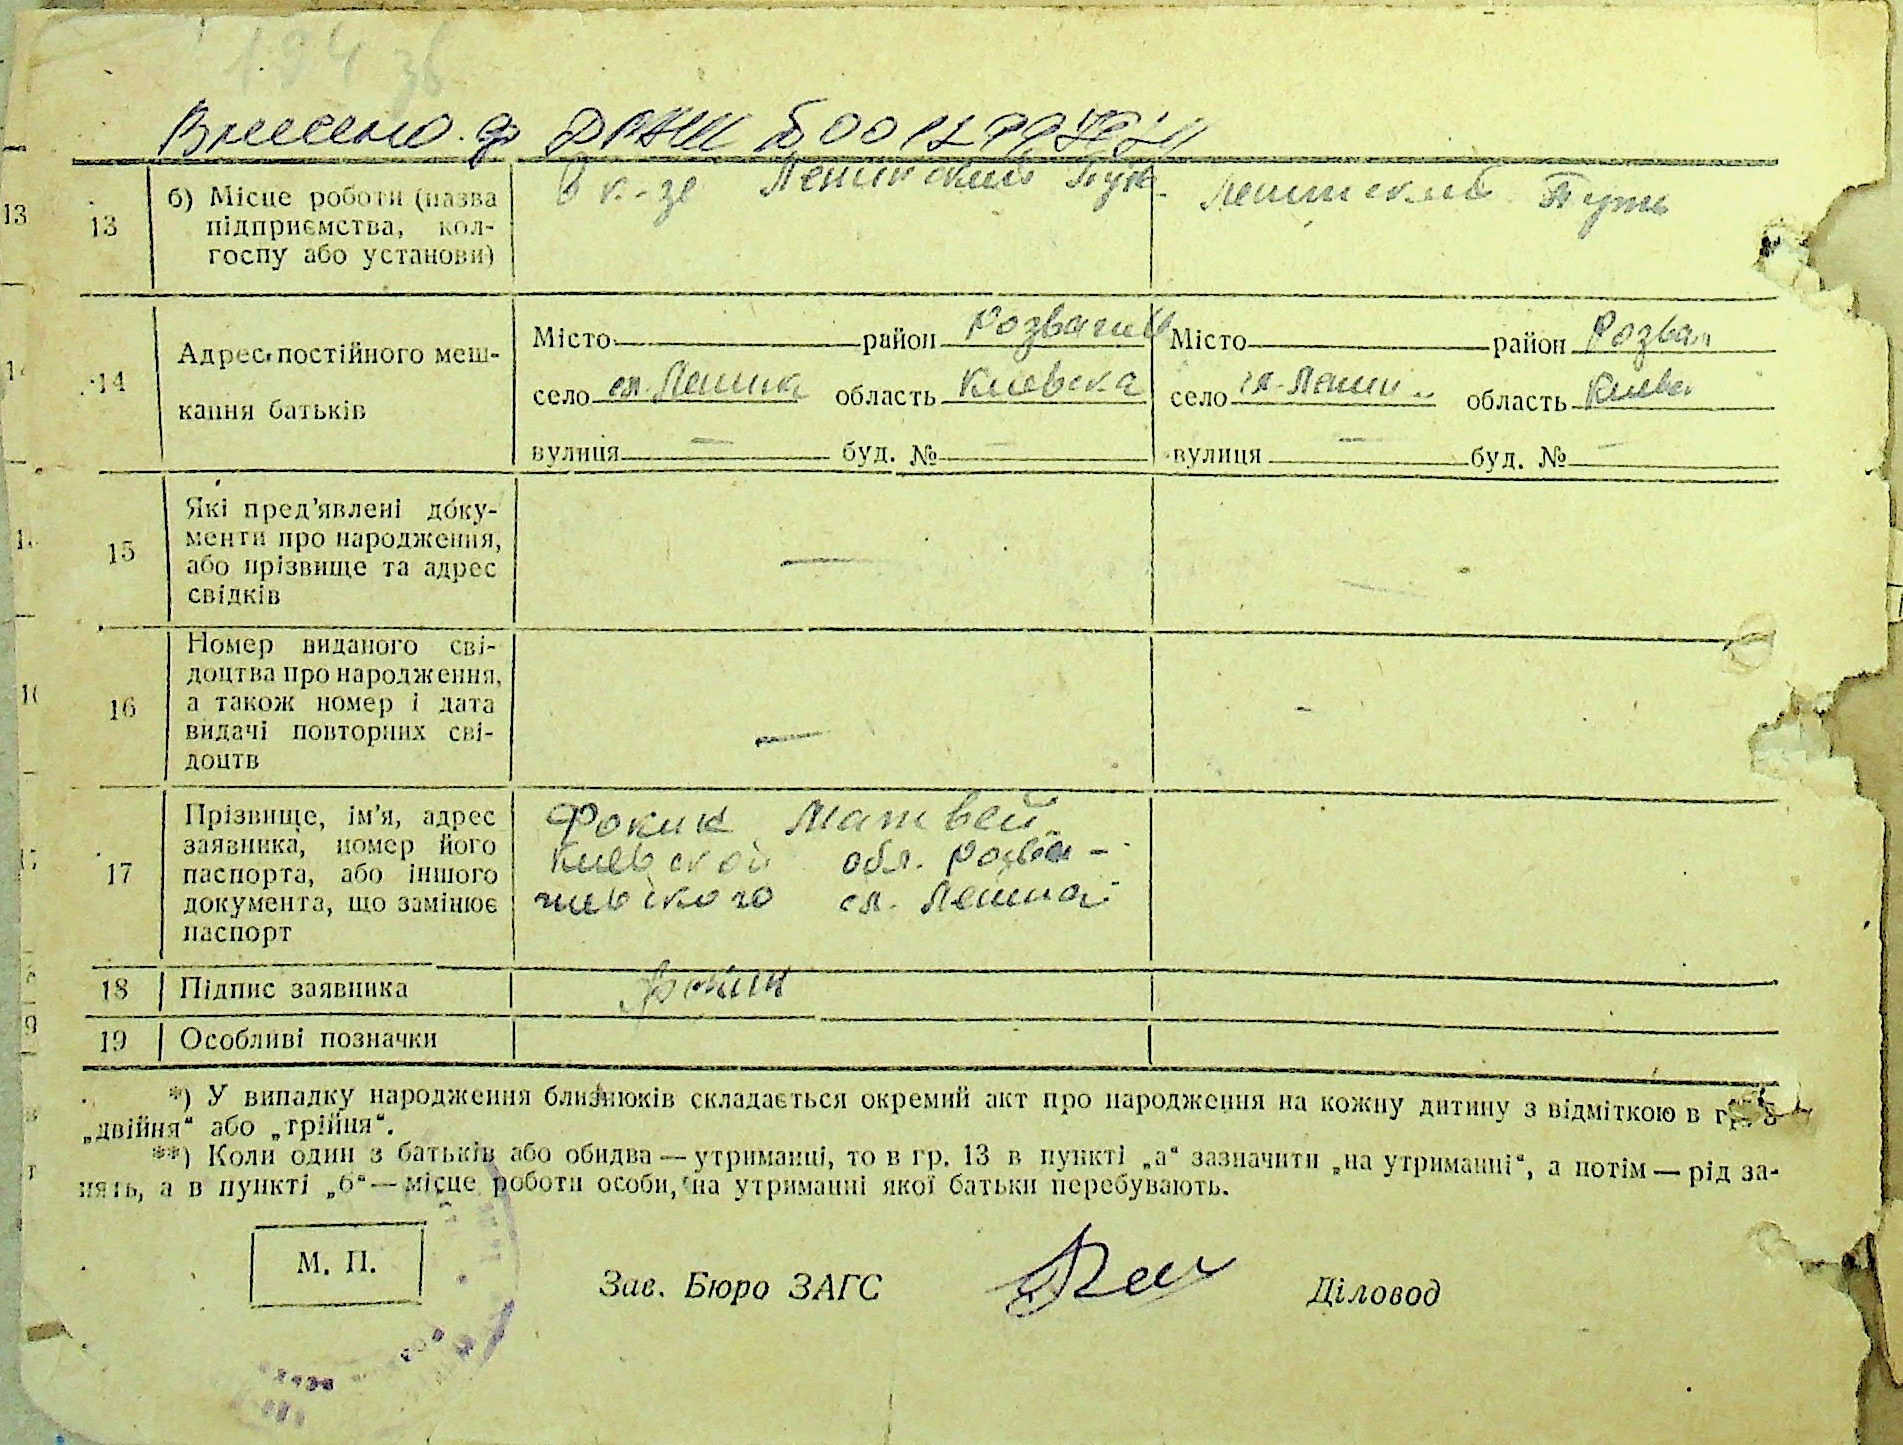 194 зб
Внесено в ДРАЦС
13 б) Місце роботи (назва підприємства, кол-
госпу або установи)
в к-зе Ленинский Путь
Ленинский Путь
14 Адрес постійного меш-
кання батьків
Місто район Розважив
село сл. Ленина область Киевска
вулиця — буд. № —
Місто район Розваж
село сл. Ленин область Киев
вулиця — буд. № —
15 Які пред'явлені доку-
менти про народження,
або прізвище та адрес
свідків
—
16 Номер виданого сві-
доцтва про народження,
а також номер і дата
видачі повторних сві-
доцтв
—
17 Прізвище, ім'я, адрес
заявника, номер його
паспорта, або іншого
документа, що замінює
паспорт
Фокин Матвей
Киевской обл. Розва-
живского сл. Ленина
18 Підпис заявника
Фокин
19 Особливі позначки
*) У випадку народження близнюків складається окремий акт про народження на кожну дитину з відміткою в гр. 3
„двійня“ або „трійня“.
**) Коли один з батьків або обидва — утриманці, то в гр. 13 в пункті „а“ зазначити „на утриманні“, а потім — рід за-
нять, а в пункті „б“ — місце роботи особи, на утриманні якої батьки перебувають.
М. П.
Зав. Бюро ЗАГС
Діловод